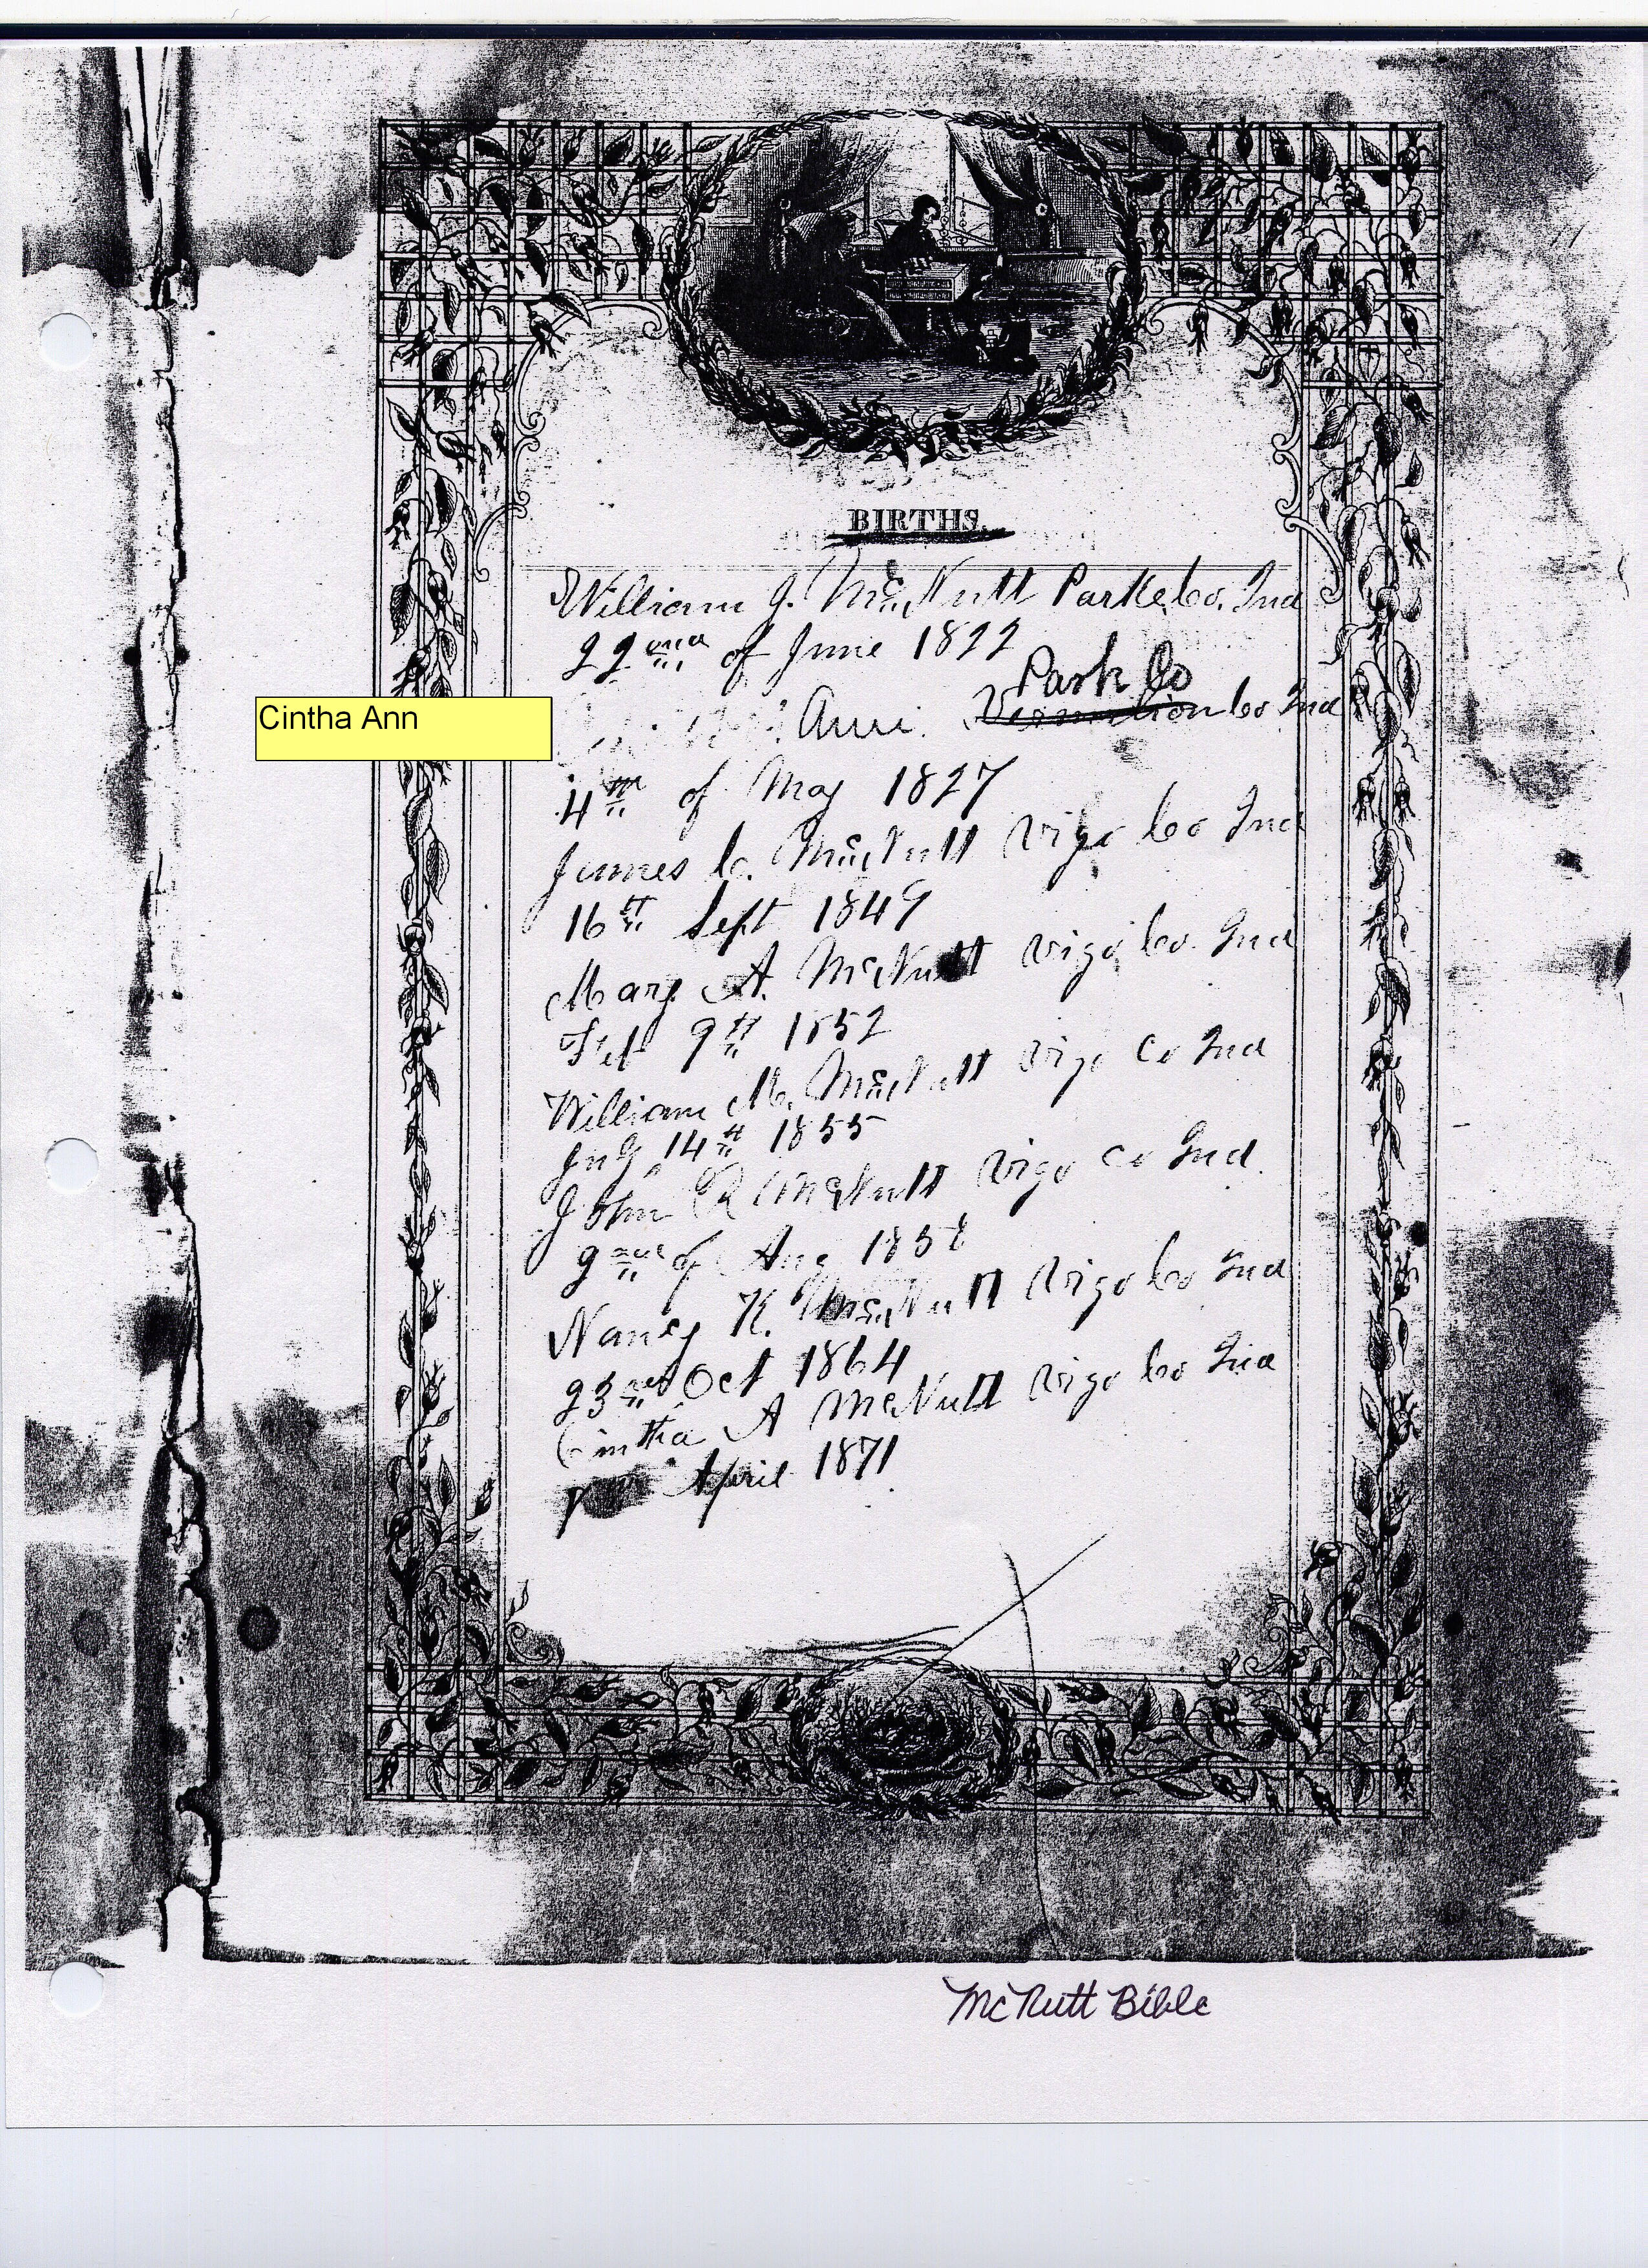 BIRTHS.
William J. McNutt Parke Co. Ind
22nd of June 1822
Park Co
Cintha Ann
Ann. Vermilion Co Ind
4th of May 1827
James C. McNutt Vigo Co Ind
16th Sept 1849
Mary A. McNutt Vigo Co. Ind
Feb 9th 1852
William M. McNutt Vigo Co Ind
July 14th 1855
John R McNutt Vigo Co Ind.
of Aug 1858
Nancy K. McNutt Vigo Co Ind
23rd Oct 1864
Cintha A McNutt Vigo Co Ind
April 1871
McNutt Bible